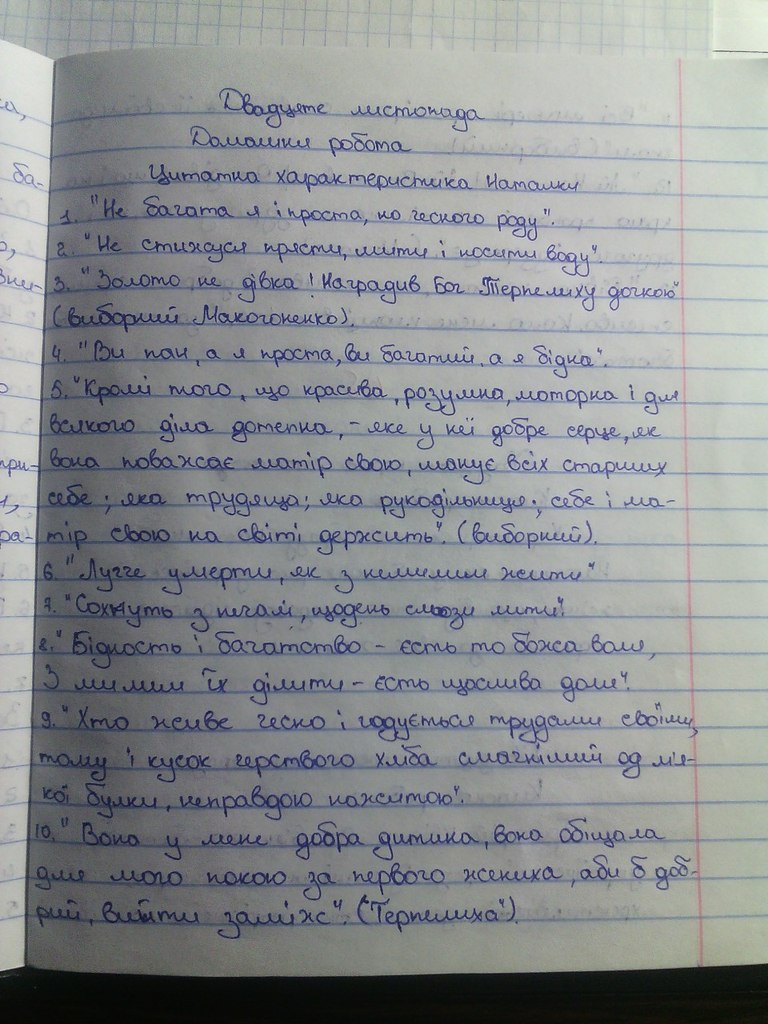 Двадцяте листопада
Домашня робота
Цитатна характеристика Наталки
1. "Не багата я і проста, но чесного роду".
2. "Не стижуся прясти, шити і носити воду".
3. "Золото не дівка! Наградив Бог Терпелиху дочкою"
(виборний Макогоненко).
4. "Ви пан, а я проста, ви багатий, а я бідна".
5. "Кромі того, що красива, розумна, моторна і для
всякого діла дотепна, - яке у неї добре серце, як
вона поважає матір свою, шанує всіх старших
себе; яка трудяща; яка рукодільниця; себе і ма-
тір свою на світі держить". (виборний).
6. "Лучче умерти, як з немилим жити"
7. "Сохнуть з печалі, щодень сльози лити".
8. "Бідность і багатство - єсть то божа воля,
З милим їх ділити - єсть щаслива доля".
9. "Хто живе чесно і годується трудами своїми,
тому і кусок черствого хліба смачніший од м'я-
кої булки, неправдою нажитою".
10. "Вона у мене добра дитина, вона обіщала
для мого покою за первого жениха, аби б доб-
рий, вийти заміж". ("Терпелиха").
ба-
при-
ра-